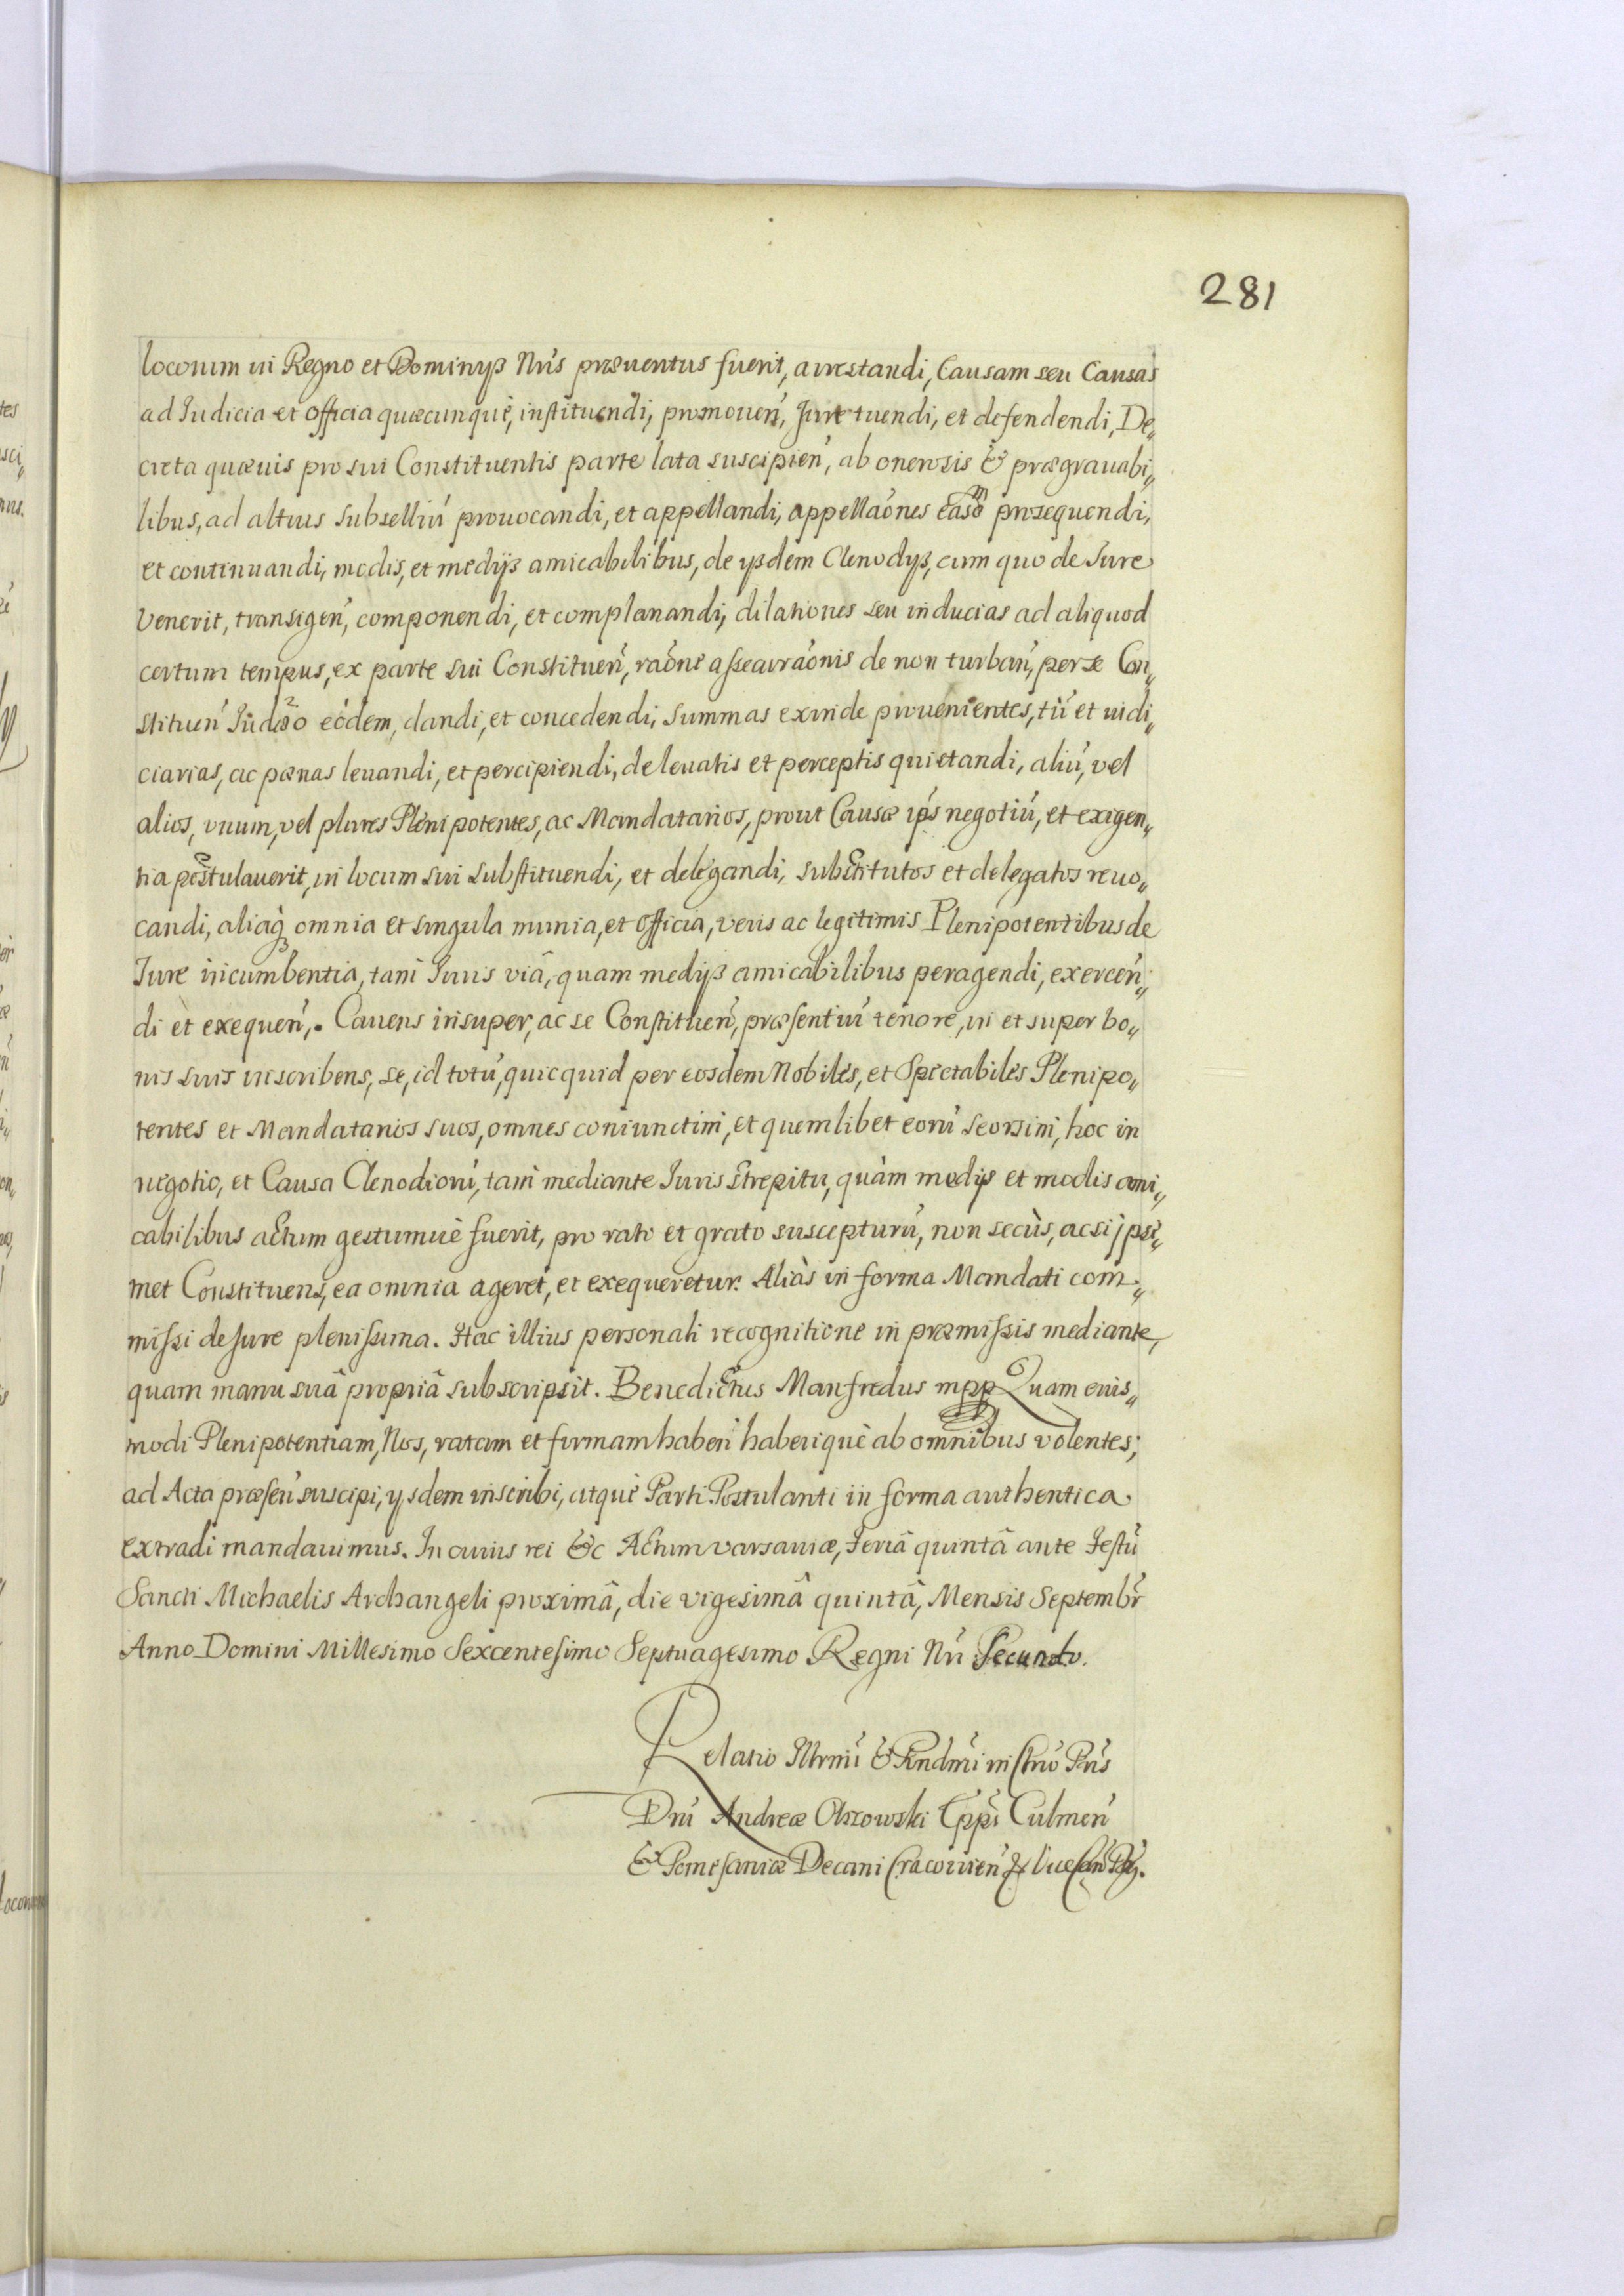 281
locorum in Regno et Dominijs Nris præuentus fuerit, arrestandi, Causam seu Causas
ad Iudicia et officia quæcunquè, instituendi, promouen, Jure tuendi, et defendendi, De„
creta quæuis pro sui Constituentis parte lata suscipien, ab onerosis & prægrauabi„
libus, ad altius Subselliu prouocandi, et appellandi, appellaones easd prosequendi,
et continuandi, modis, et medijs amicabilibus, de ysdem Clenodys, cum quo de Iure
Venerit, transigen, componendi, et complanandi, dilationes seu inducias ad aliquod
certum tempus, ex parte sui Constituen, raone assecuraonis de non turban, per se Con„
stituen eodem, dandi, et concedendi, Summas exinde prouenientes, tu et iudi„
ciarias, ac pænas leuandi, et percipiendi, de leuatis et perceptis quietandi, aliu, vel
alios, vnum, vel plures Plenipotentes, ac Mandatarios, prout Causæ ips negotiu, et exigen„
tia postulauerit, in locum sui substituendi, et delegandi, substitutos et delegatos reuo„
candi, aliaq omnia et singula munia, et officia, veris ac legitimis Plenipotentibus de
Iure incumbentia, tam Iuris viâ, quam medijs amicabilibus peragendi, exercen„
di et exequen. Cauens insuper, ac se Constituen, præsentiu tenore, in et super bo„
nis suis inscribens, se, id totu, quicquid per eosdem Nobiles, et Spectabiles Plenipo„
tentes et Mandatarios suos, omnes coniunctim, et quemlibet eoru seorsim, hoc in
negotio, et Causa Clenodioru, tam mediante Iuris Strepitu, quàm medijs et modis ami„
cabilibus actum gestumuè fuerit, pro rato et grato suscepturu, non secùs, acsi ipse„
met Constituens, ea omnia ageret, et exequeretur. Aliàs in forma Mandati com„
missi de Iure plenissima. Hac illius personali recognitione in præmissis mediante,
quam manu suâ propriâ subscripsit. Benedictus Manfredus mpp Quam eius„
modi Plenipotentiam, Nos, ratam et firmam haberi haberiquè ab omnibus volentes;
ad Acta præsen suscipi, ysdem inscribi, atquè Parti Postulanti in forma authentica
extradi mandauimus. In cuius rei &c Actum varsauiæ, Feriâ quintâ ante Festu
Sancti Michaelis Archangeli proximâ, die vigesimâ quintâ, Mensis Septembr
Anno Domini Millesimo Sexcentesimo Septuagesimo Regni Nri Secundo.
Relatio Illrmi & Rndmi in Chro Pris
Dni Andreæ Olszowski Eppi Culmen
& Pomesaniæ Decani Cracouien